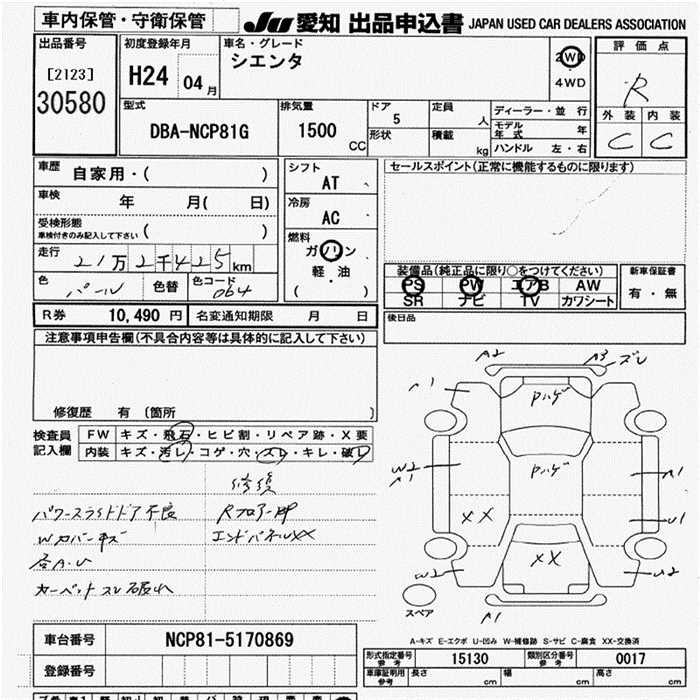 車内保管・守衛保管
JU 愛知 出品申込書 JAPAN USED CAR DEALERS ASSOCIATION
出品番号
[2123]
30580
初度登録年月
H24 04 月
車名・グレード
シエンタ
2WD
4WD
評価点
R
外装 内装
C C
型式
DBA-NCP81G
排気量
1500 CC
ドア
5
形状
定員
人
積載
kg
ディーラー・並行
モデル年式
ハンドル 左・右
車歴 自家用・( )
車検 年 月( 日)
受検形態
車検付きのみ記入して下さい ( )
走行 21万2千425 km
色 パール 色替 色コード 064
シフト
AT
冷房
AC
燃料
ガソリン
軽・油
( )
セールスポイント(正常に機能するものに限ります)
装備品(純正品に限り○をつけてください)
PS PW エアB AW
SR ナビ TV カワシート
新車保証書
有・無
R券 10,490 円 名変通知期限 月 日
後日品
注意事項申告欄(不具合内容等は具体的に記入して下さい)
修復歴 有 〔箇所 〕
検査員記入欄
FW キズ・飛石・ヒビ割・リペア跡・X要
内装 キズ・汚レ・コゲ・穴・スレ・キレ・破レ
修復
パワースライドドア不良 Rフロアー凹
Wカバーキズ エンドパネルXX
各A.U
カーペットスレ破れ
A2 A3 スレ
A1 Pハゲ
W2 A1 Pハゲ A1
XX U1
W2 XX U2
スペア A1
A-キズ E-エクボ U-凹み W-補修跡 S-サビ C-腐食 XX-交換済
車台番号 NCP81-5170869
登録番号
形式指定番号 参考 15130 類別区分番号 参考 0017
車庫証明用 参考 長さ cm 幅 cm 高さ cm